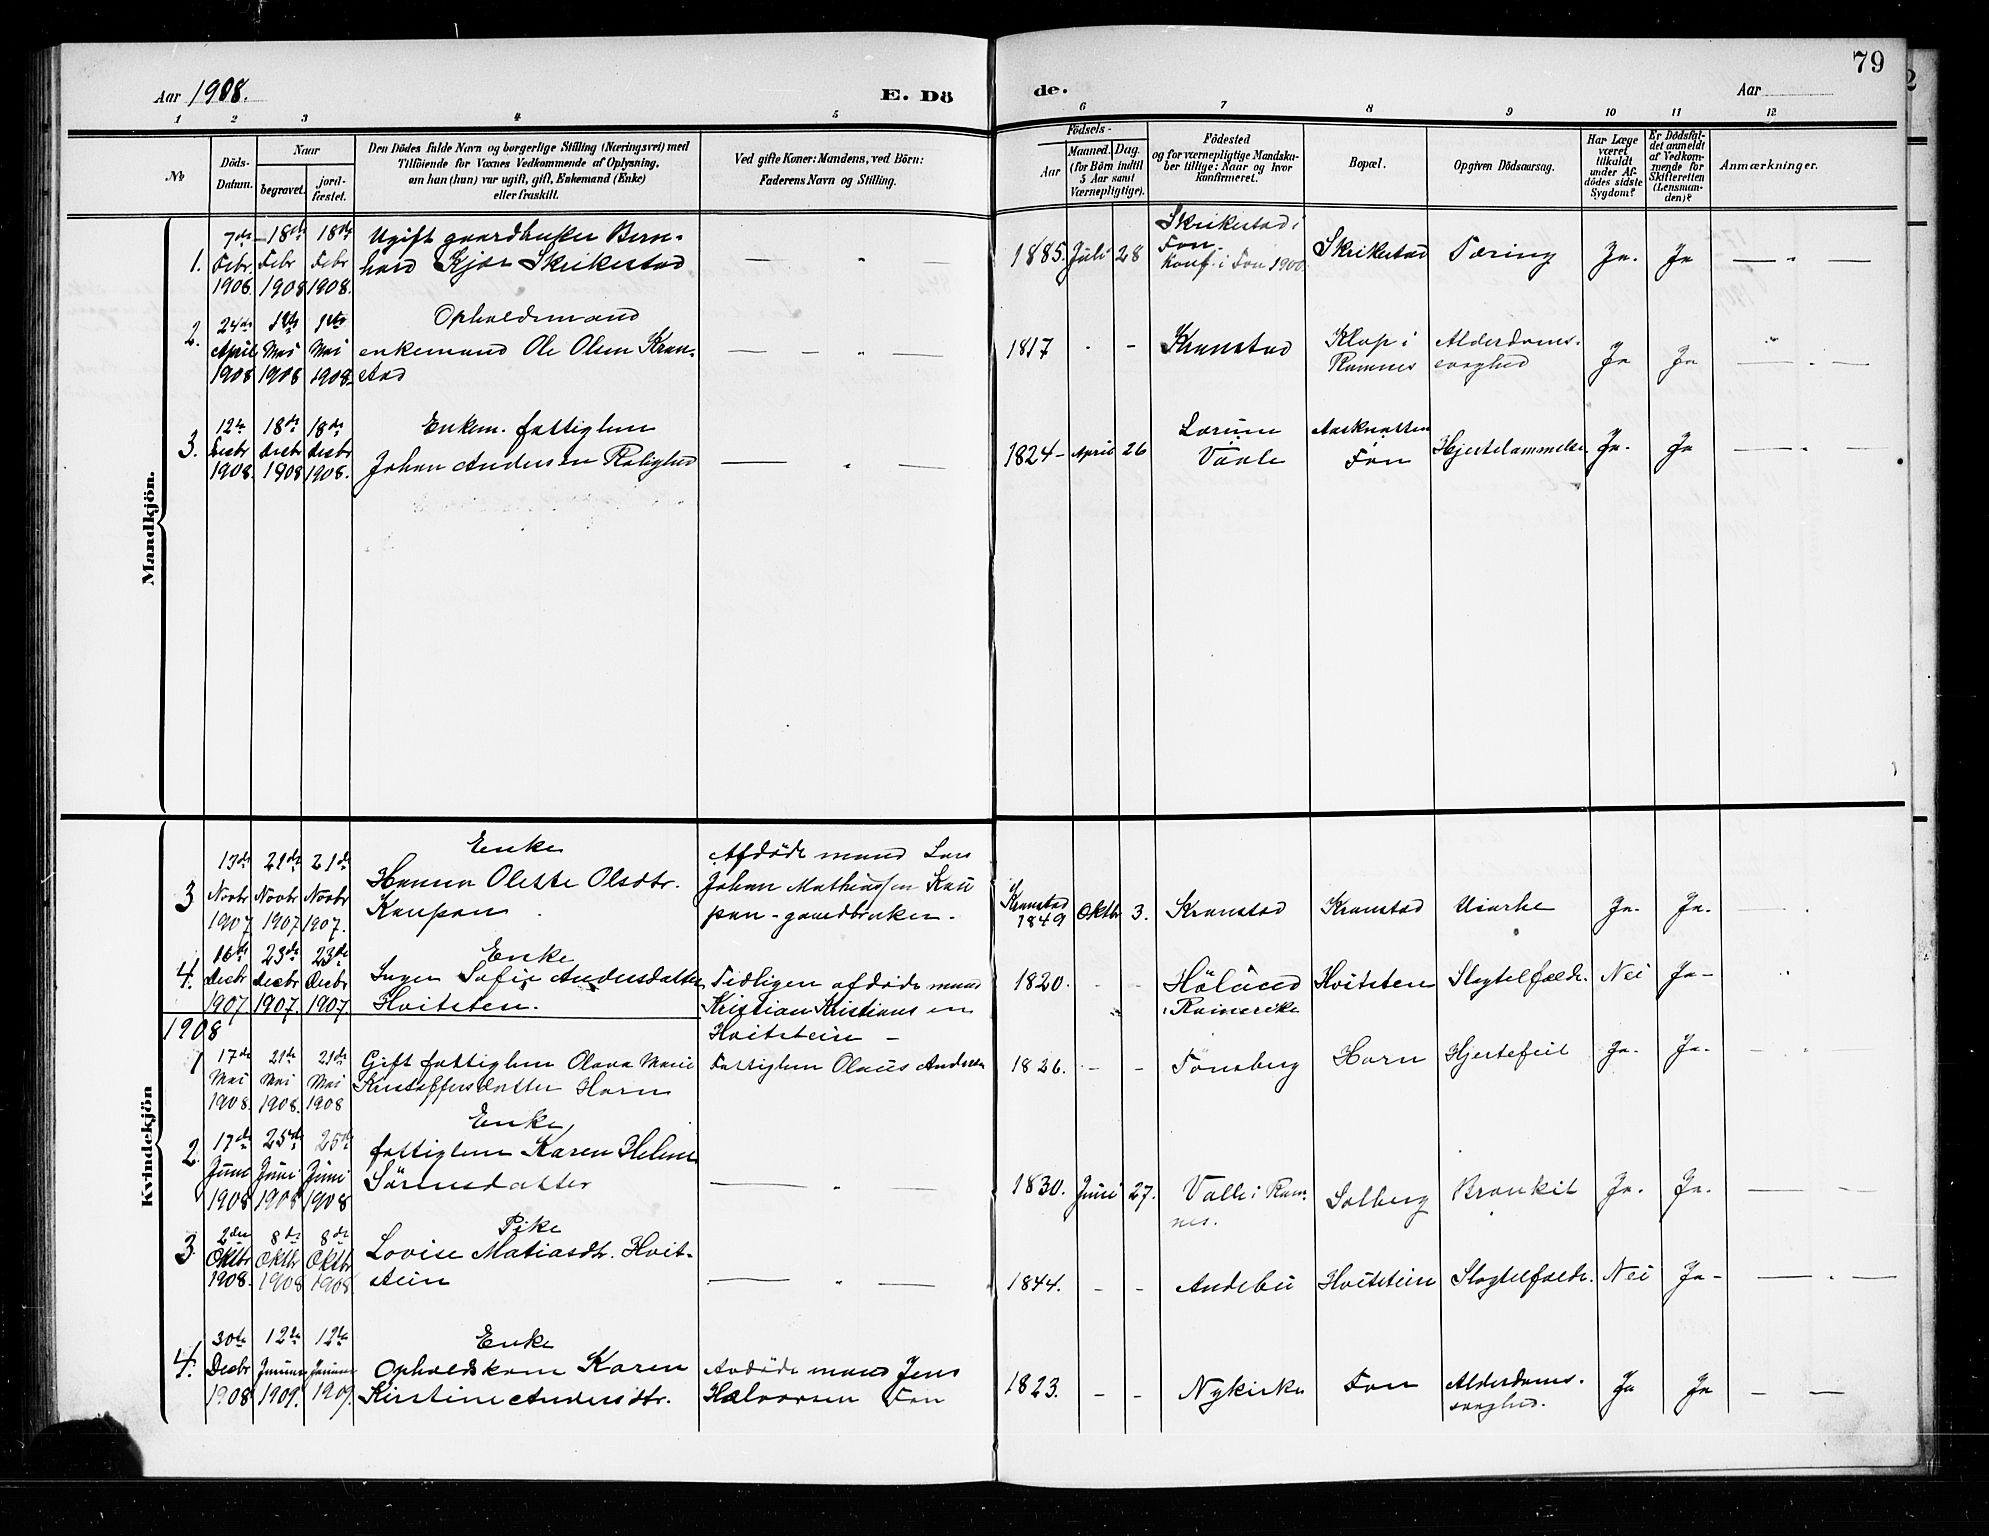 79
Aar 1908.
E. Dö
de.
Aar
1 2 3 4 5 6 7 8 9 10 11 12
No
Döds-
Datum.
Naar
begravet.
jord-
fæstet.
Den Dödes fulde Navn og borgerlige Stilling (Næringsvei) med
Tilföiende for Voxnes Vedkommende af Oplysning,
om han (hun) var ugift, gift, Enkemand (Enke)
eller fraskilt.
Ved gifte Koner: Mandens, ved Börn:
Faderens Navn og Stilling.
Födsels-
Aar
Maaned. Dag.
(for Börn indtil
5 Aar samt
Værnepligtige).
Födested
og for værnepligtige Mandska-
ber tillige: Naar og hvor
konfirmeret.
Bopæl.
Opgiven Dödsaarsag.
Har Læge
været
tilkaldt
under Af-
dödes sidste
Sygdom?
Er Dödsfal-
det anmeldt
af Vedkom-
mende for
Skifteretten
(Lensman-
den)?
Anmærkninger.
Mandkjön.
1. 7de Febr. 1908. 18de Febr 1908 18de Febr 1908.
Ugift gaardbruker Bern-
hard Kjær Skrikestad
— " —
1885. Juli 28
Skrikestad i
Fon.
Konf. i Fon 1900.
Skrikestad
Tæring
Ja. Ja
— " —
2. 24de April 1908 1ste Mai 1908 1ste Mai 1908.
Opholdsmand
enkemand Ole Olsen Kron-
stad
— — " —
1817 - -
Kronstad
Klop i
Ramnes
Alderdoms-
svaghed
Ja Ja
3. 12te Desbr 1908. 18de Desbr 1908 18de Desbr 1908.
Enkem. fattiglem
Johan Andersen Rolighed
— " —
1824 - April 26
Lorum
Våale
Aasknatten
Fon
Hjertelammelse.
Ja. Ja
Kvindekjön
3 13de Novbr 1907 21de Novbr 1907 21de Novbr 1907.
Enke
Hanna Olette Olsdtr.
Kaupan
Afdöde mand Lars
Johan Mathiassen Kau
pan - gaardbruker -
Kronstad
1849 Oktbr 3.
Kronstad Kronstad
Ja. Ja.
4. 16de Desbr 1907 23de Desbr 1907. 23de Desbr 1907.
Enke
Inger Sofie Andersdatter
Hvitsten.
Tidligen afdöde mand
Kristian Kristiansen
Hvitstein -
1820. - -
Höland
i Romerike
Hvitsten Slagtilfælde. Nei Ja -
1908
1 17de Mai 1908. 21de Mai 1908. 21de Mai 1908
Gift fattiglem Olava Marie
Kristoffersdatter Horn
Fattiglem Olaus Andersen
1826. - -
Tönsberg Horn Hjertefeil Ja. Ja.
2. 17de Juni 1908 25de Juni 1908 25de Juni 1908
Enke,
fattiglem Karen Helene
Sörensdatter
— " —
1830. Juni 27.
Valle i Ram-
nes.
Solberg Bronkit Ja. Ja.
3 2den Oktbr 1908. 8de Oktbr 1908 8de Oktbr 1908
Pike
Lovise Matiasdtr. Hvit-
stein
— " —
1844. - -
Andebu Hvitstein Slagtilfælde. Nei Ja -
4. 30te Desbr 1908 12te Januar 1909. 12te Januar 1909.
Enke
Opholdskone Karen
Kirstine Andersdtr.
Avdöde mand Jens
Halvorsen Fon
1823. - -
Nykirke Fon
Alderdoms-
svaghed.
Ja Ja